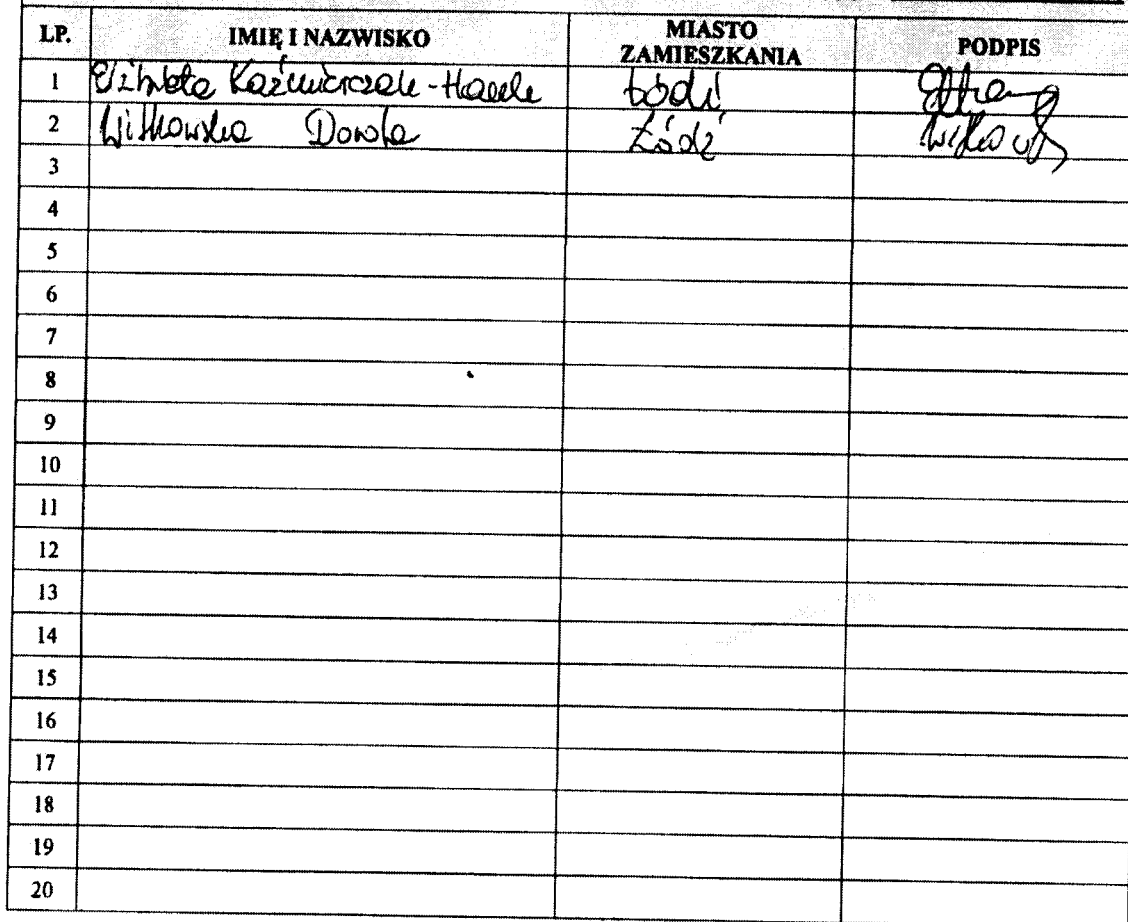 LP. IMIĘ I NAZWISKO MIASTO ZAMIESZKANIA PODPIS
1 Elżbieta Kaźmierczak - Łódź
2 Witkowska Dorota Łódź
3
4
5
6
7
8
9
10
11
12
13
14
15
16
17
18
19
20